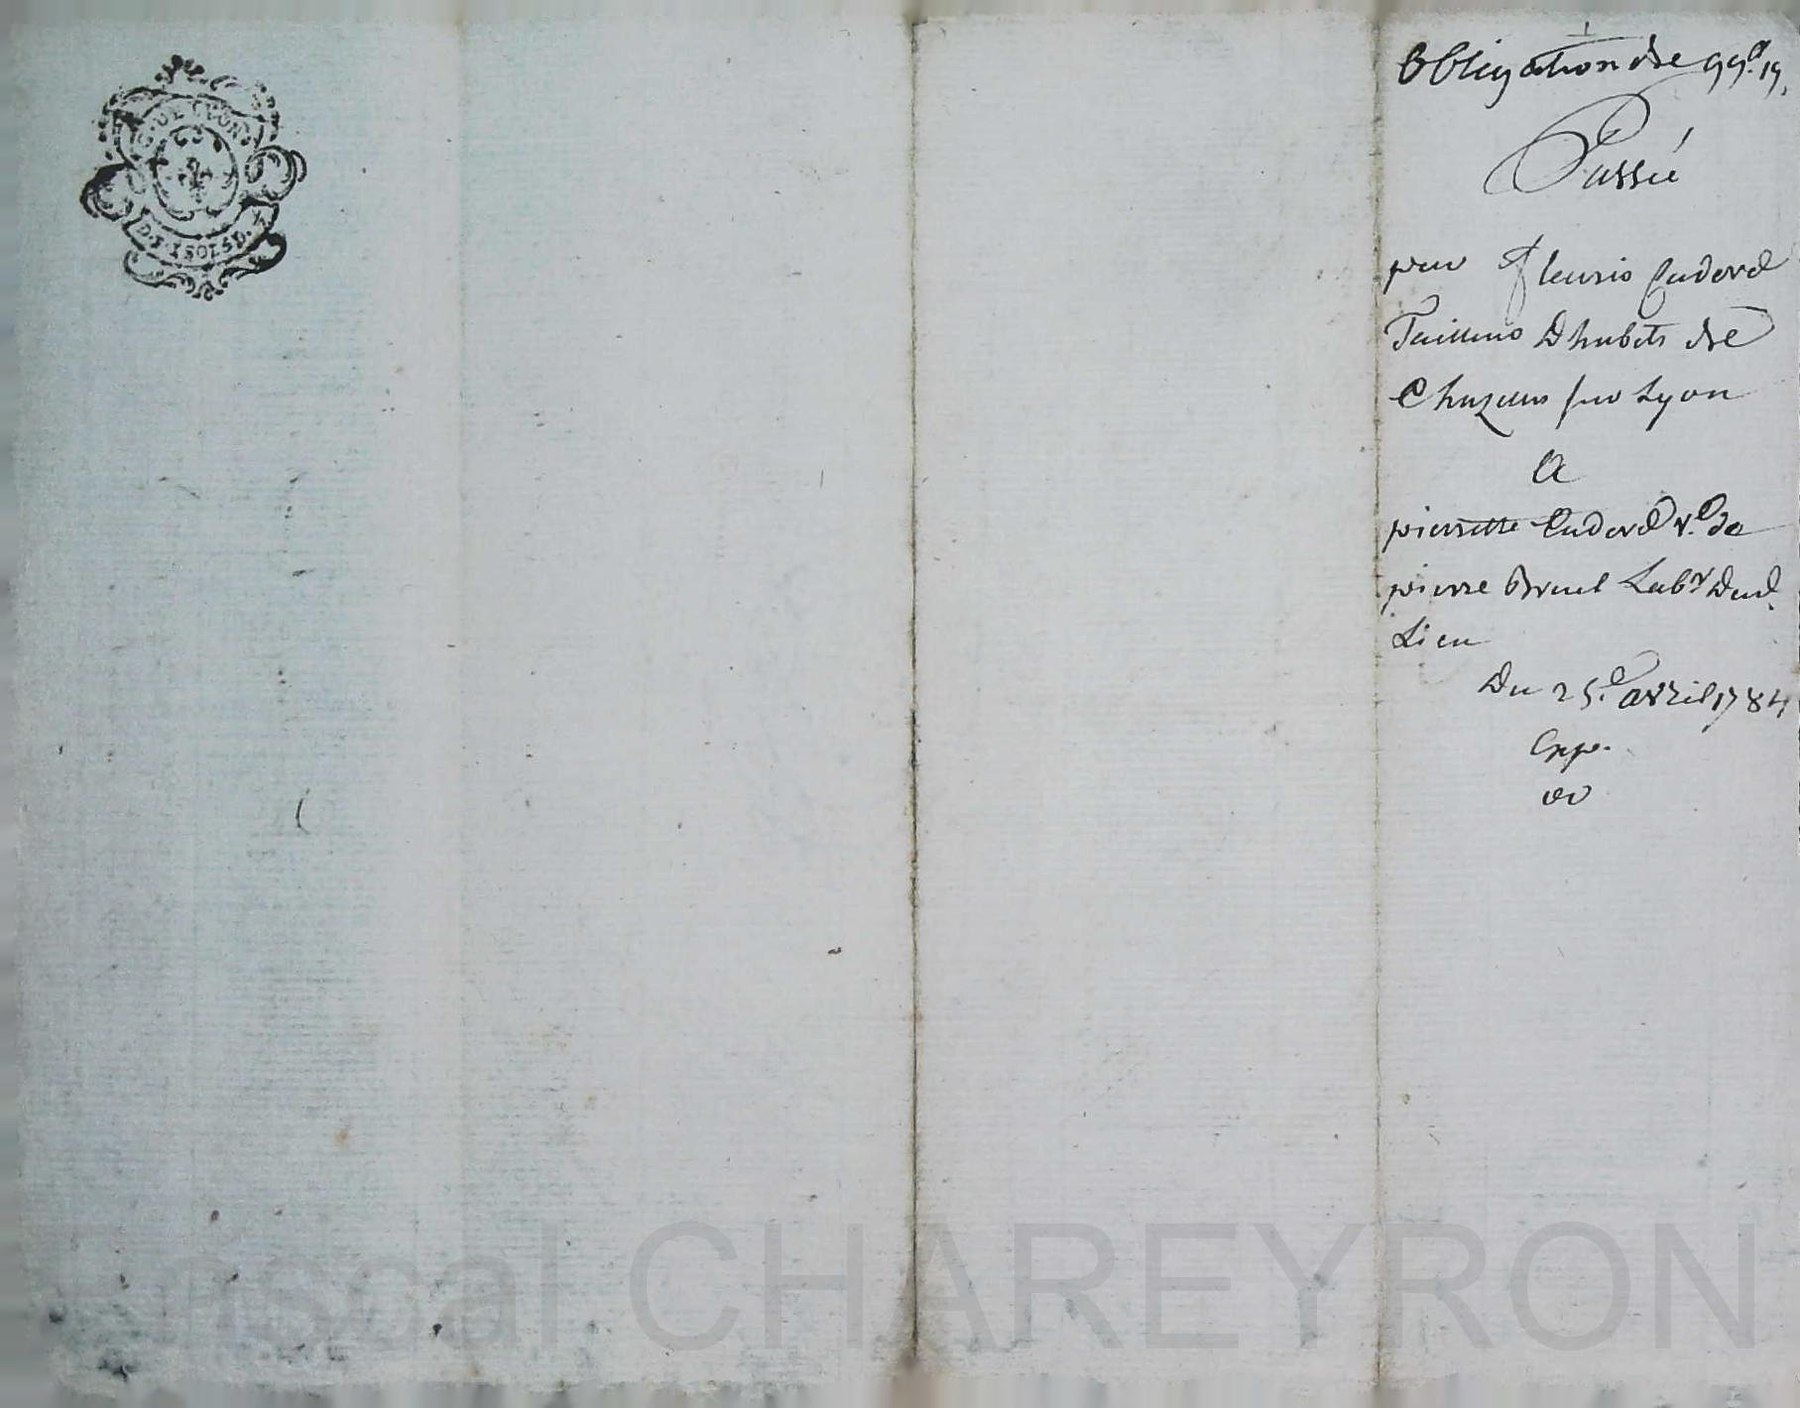 G. DE LYON.
D. I. ISOLSD. 4.
Obligation de 99.ᵗ 19.
Passée
par fleurie Cadord
Tailleur Dhabits de
Chazelles sur Lyon
A
pierrette Cadord v.ᵉ de
pierre Bruel Labʳ Dud.
Lieu
Du 25.ᵉ avril 1784
Exp.
CHAREYRON